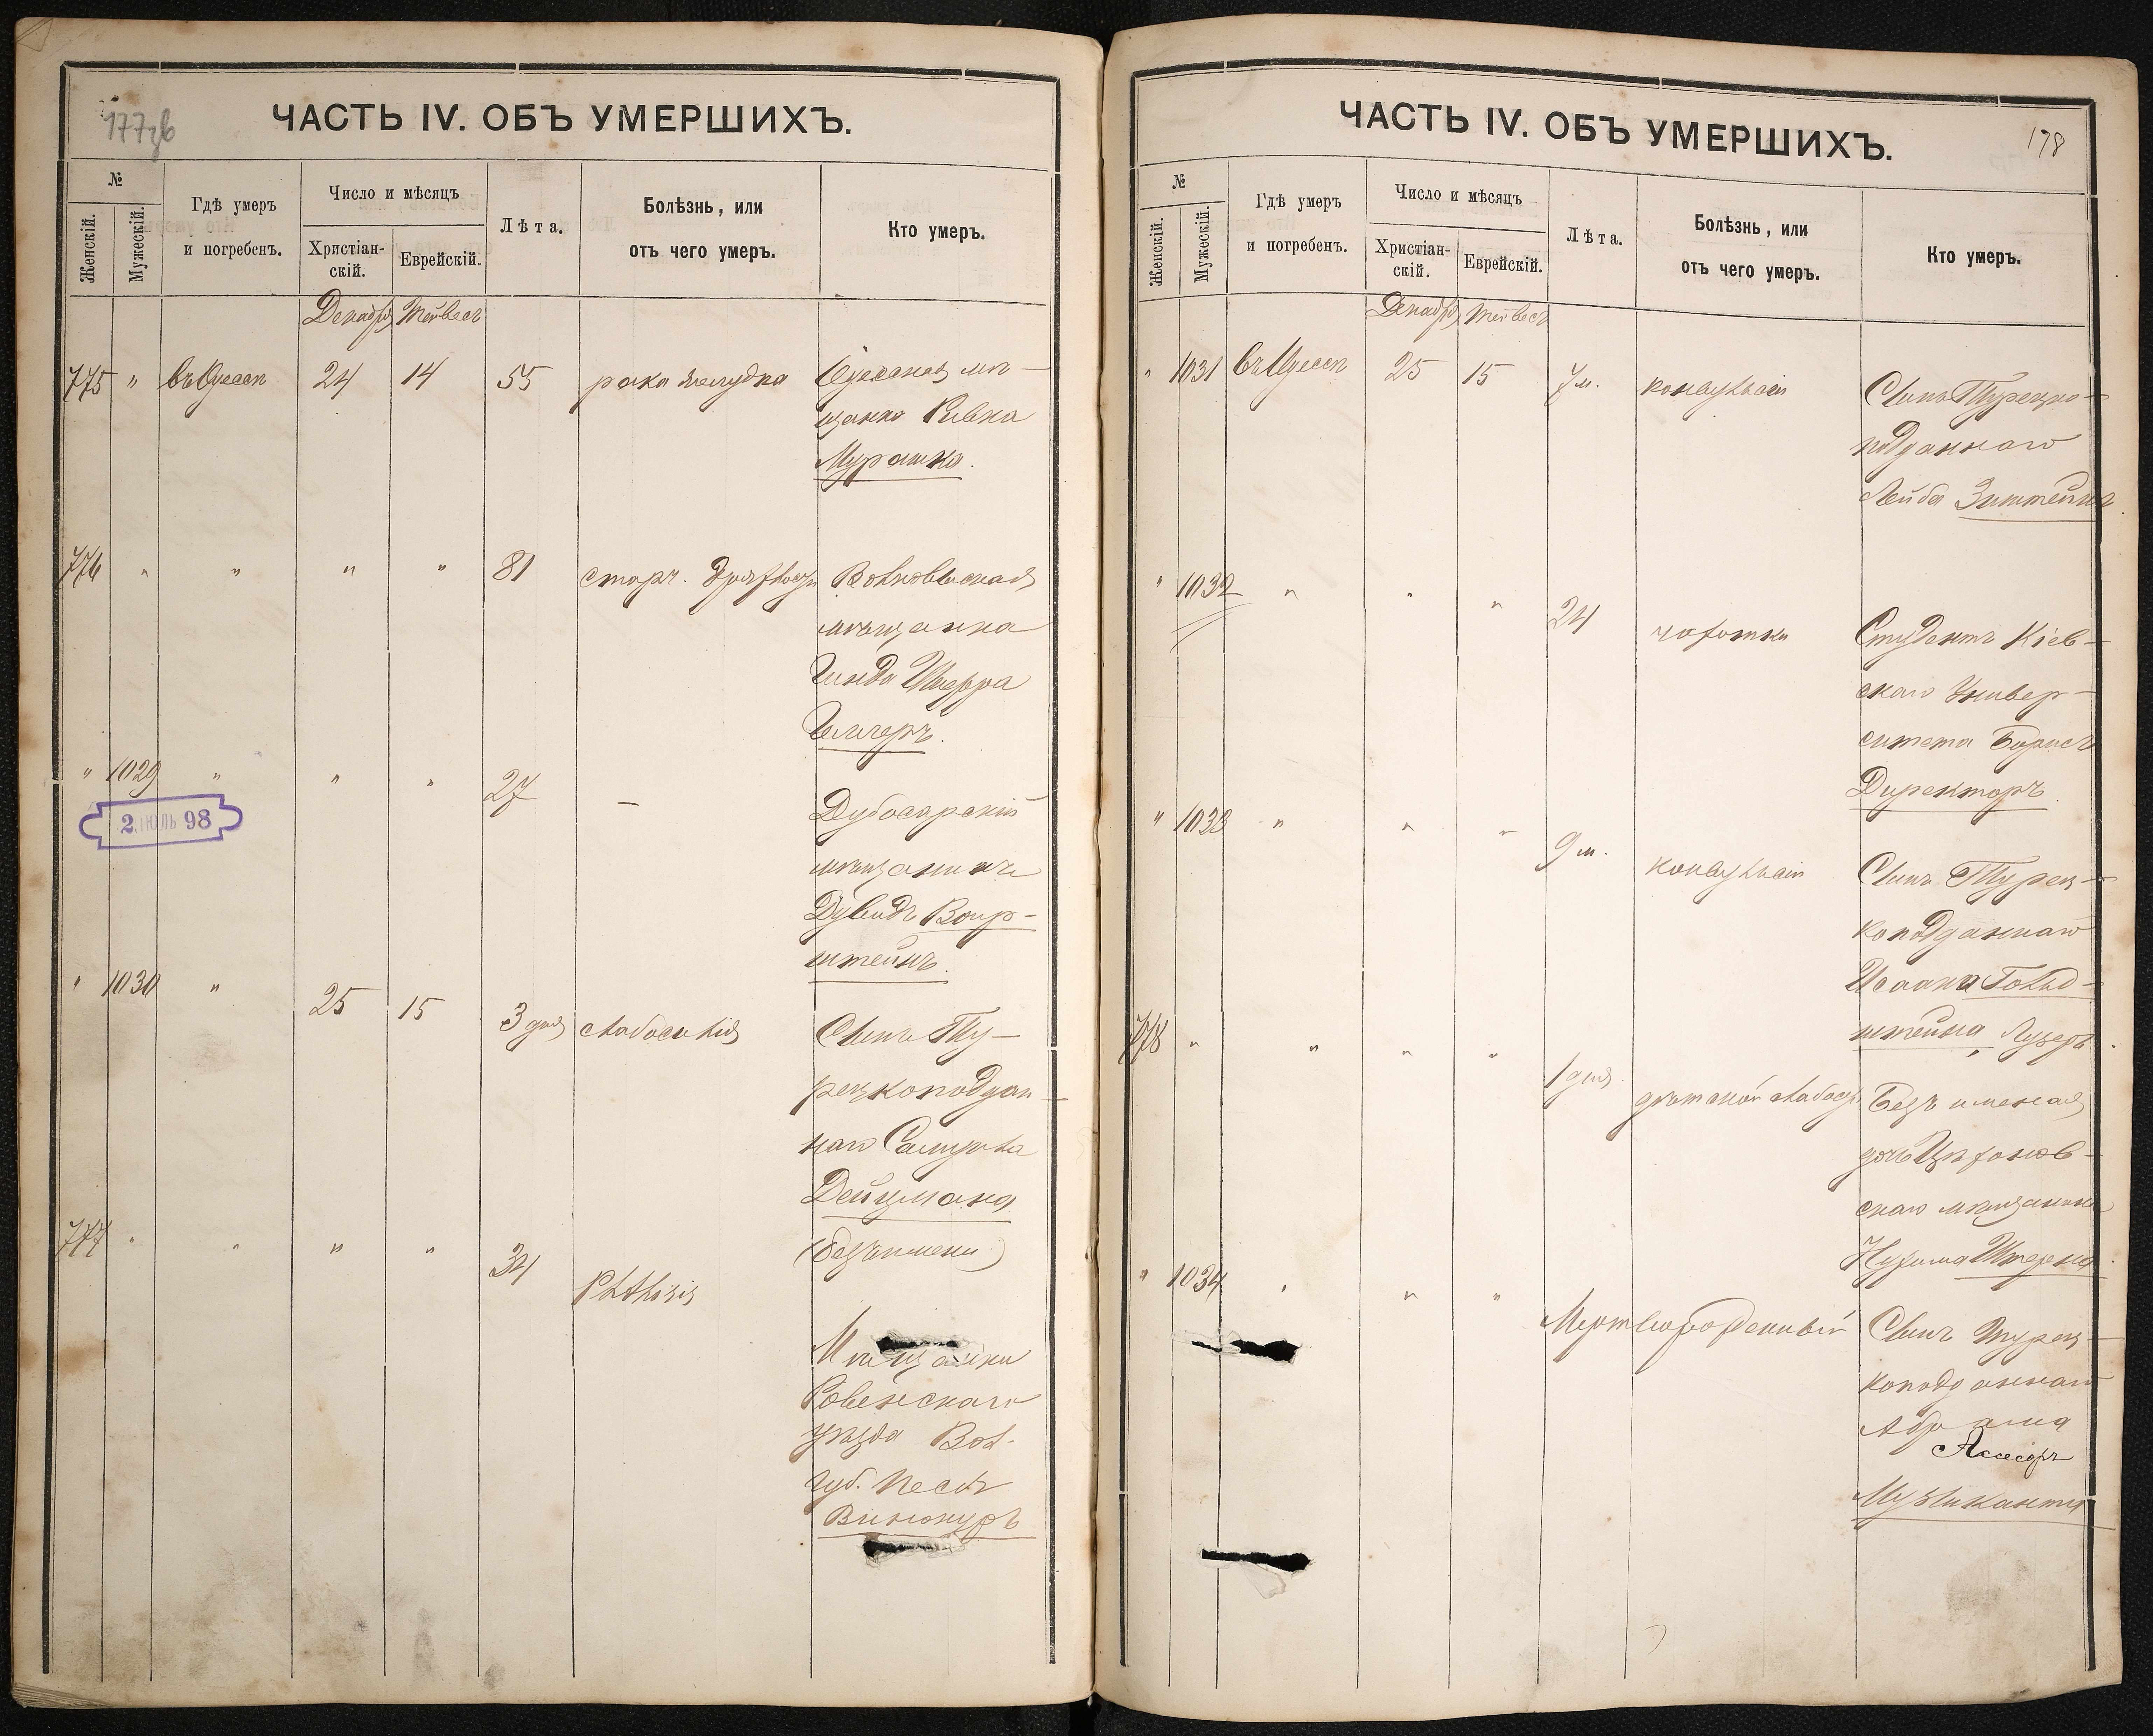 177об
ЧАСТЬ IV. ОБЪ УМЕРШИХЪ.
№
Женскій.
Мужескій.
Гдѣ умеръ
и погребенъ.
Число и мѣсяцъ
Христіан-
скій.
Еврейскій.
Лѣта.
Болѣзнь, или
отъ чего умеръ.
Кто умеръ.
Декабрь Тейвесъ
775 " въ Одессѣ 24 14 55 рака желудка
мѣ-
щанка Ривка
Мурашка.
776 " " " " 81 старч. дряхлость Волковыская
мѣщанка
Гинда
" 1029 " " " 27 — Дубосарскій
2 ІЮЛЬ 98
мѣщанинъ
Дувидъ Баир-
штейнъ.
" 1030 " 25 15 3 дня слабосилія Сынъ Ту-
рецкоподдан-
наго Самуила
Дейчмана
(безъ имени)
777 " " " " 34 Phthisis
Мѣщанки
Ровенскаго
уѣзда Вол.
губ. Песѣ
Винокуръ
178
ЧАСТЬ IV. ОБЪ УМЕРШИХЪ.
№
Женскій.
Мужескій.
Гдѣ умеръ
и погребенъ.
Число и мѣсяцъ
Христіан-
скій.
Еврейскій.
Лѣта.
Болѣзнь, или
отъ чего умеръ.
Кто умеръ.
Декабрь Тейвесъ
" 1031 въ Одессѣ 25 15 7 м. конвульсіи Сынъ Турецко-
подданнаго
Лейба Зитштейнъ.
" 1032 " " " 24 чахотки Студентъ Кіев-
скаго Универ-
ситета Борисъ
Директоръ.
" 1033 " " " 9 м. конвульсіи Сынъ Турец-
коподданнаго
Исаака Гольд-
штейна Лузеръ.
778 " " " " 1 дня дѣтской слабости Безъименная
дочь
скаго мѣщанина
Нухима Штерна.
" 1034 " " " Мертворожденный Сынъ Турец-
коподданнаго
Абрама
Асесоръ
Музыканта